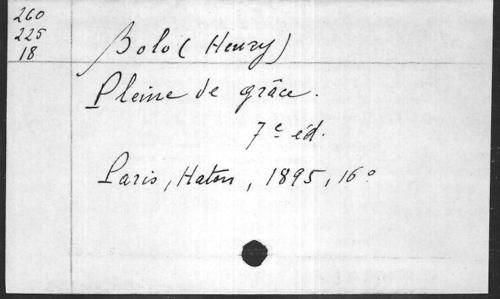 260
225
18
Bolo (Henry)
Pleine de grâce.
7e éd.
Paris, Haton, 1895, 16°